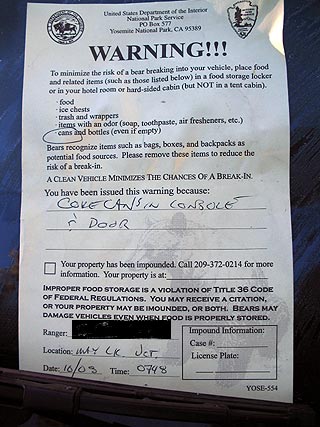 United States Department of the Interior
National Park Service
PO Box 577
Yosemite National Park, CA 95389
WARNING!!!
To minimize the risk of a bear breaking into your vehicle, place food
and related items (such as those listed below) in a food storage locker
or in your hotel room or hard-sided cabin (but NOT in a tent cabin).
· food
· ice chests
· trash and wrappers
· items with an odor (soap, toothpaste, air fresheners, etc.)
· cans and bottles (even if empty)
Bears recognize items such as bags, boxes, and backpacks as
potential food sources. Please remove these items to reduce the
risk of a break-in.
A CLEAN VEHICLE MINIMIZES THE CHANCES OF A BREAK-IN.
You have been issued this warning because:
COKE CANS IN CONSOLE
& DOOR
Your property has been impounded. Call 209-372-0214 for more
information. Your property is at:
IMPROPER FOOD STORAGE IS A VIOLATION OF TITLE 36 CODE
OF FEDERAL REGULATIONS. YOU MAY RECEIVE A CITATION,
OR YOUR PROPERTY MAY BE IMOUNDED, OR BOTH. BEARS MAY
DAMAGE VEHICLES EVEN WHEN FOOD IS PROPERLY STORED.
Ranger:
Location: MAY LK JCT.
Date: 10/03 Time: 0748
Impound Information:
Case #:
License Plate:
YOSE-554